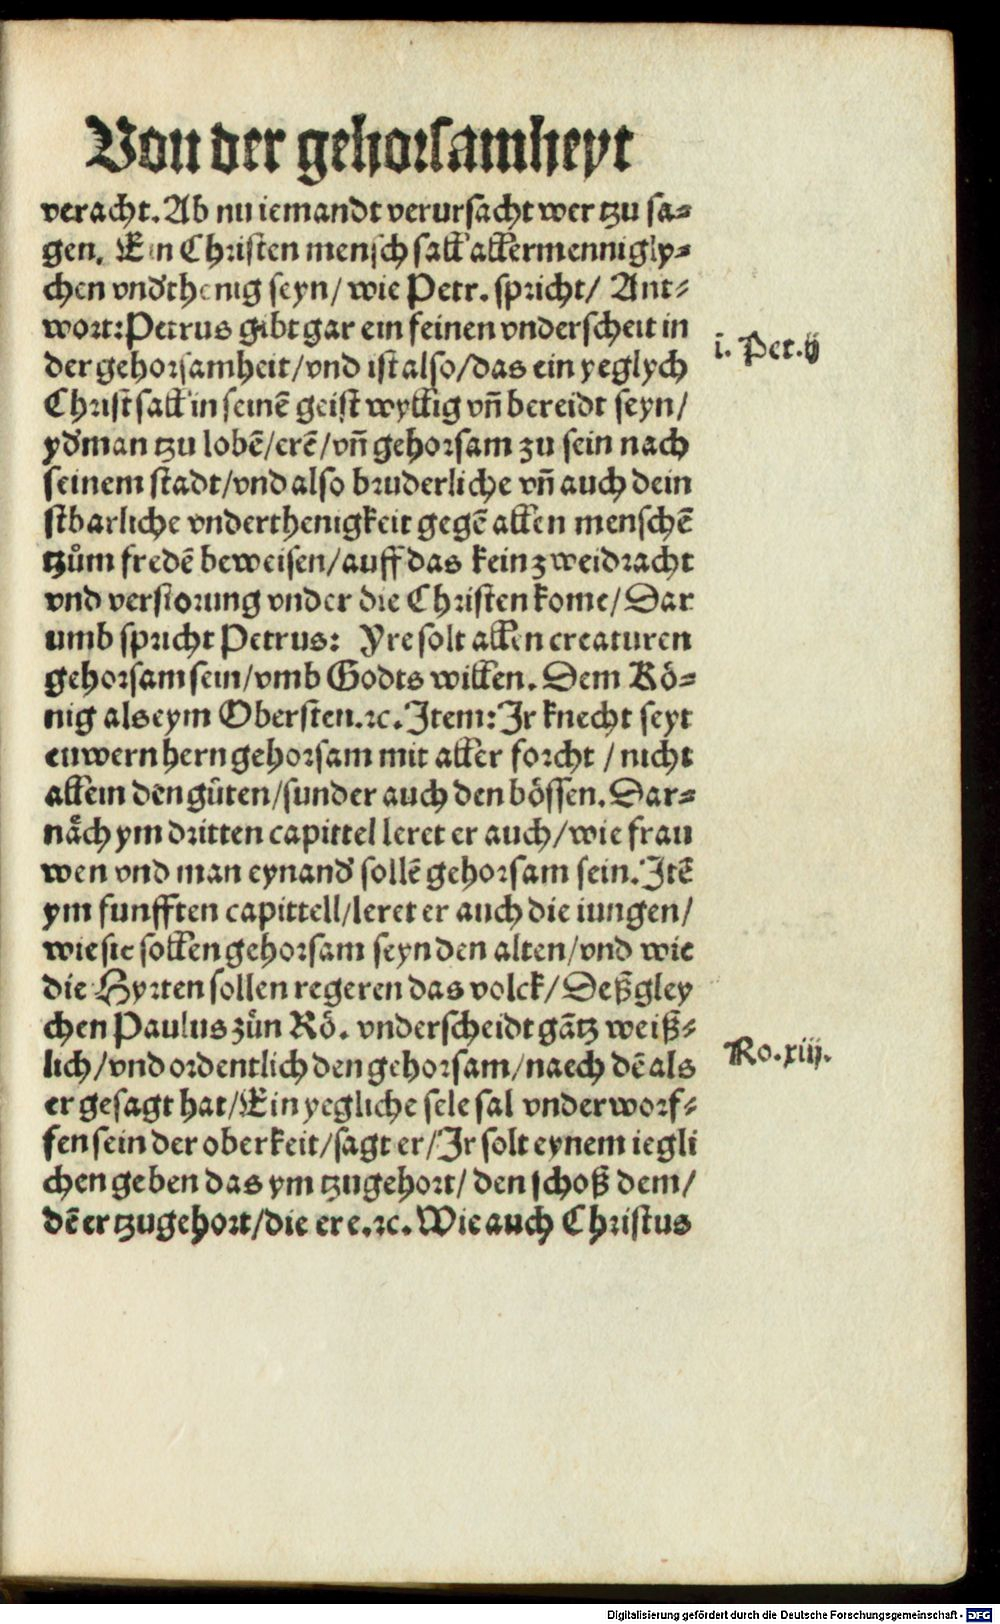 Von der gehorsamheyt
veracht. Ab nu iemandt verursacht wer tzu sa-
gen. Ein Christen mensch sall allermennigly-
chen vnd'thenig seyn/ wie Petr. spricht/ Ant-
wort: Petrus gibt gar ein feinen vnderscheit in
i. Pet. ij
der gehorsamheit/vnd ist also/das ein yeglych
Christ sall in seinē geist wyllig vn̄ bereidt seyn/
yd'man tzu lobē/erē/vn̄ gehorsam zu sein nach
seinem stadt/vnd also bruderliche vn̄ auch dein
stbarliche vnderthenigkeit gegē allen menschē
tzům fredē beweisen/auff das kein zweidracht
vnd verstorung vnder die Christen kome/Dar
umb spricht Petrus: Yre solt allen creaturen
gehorsam sein/vmb Godts willen. Dem Kö-
nig als eym Obersten.ꝛc. Item: Ir knecht seyt
euwern hern gehorsam mit aller forcht / nicht
allein den gůten/sunder auch den bössen. Dar-
nåch ym dritten capittel leret er auch/wie frau
wen vnd man eynand' sollē gehorsam sein. Itē
ym funfften capittell/leret er auch die iungen/
wie sie sollen gehorsam seyn den alten/vnd wie
die Hyrten sollen regeren das volck/ Deßgley
chen Paulus zůn Rö. vnderscheidt gātz weiß-
Ro. xiij.
lich/vnd ordentlich den gehorsam/naech dē als
er gesagt hat/Ein yegliche sele sal vnderworf-
fen sein der oberkeit/sagt er/Ir solt eynem iegli
chen geben das ym tzugehort/ den schoß dem/
dē er tzugehort/die ere.ꝛc. Wie auch Christus
Digitalisierung gefördert durch die Deutsche Forschungsgemeinschaft - DFG